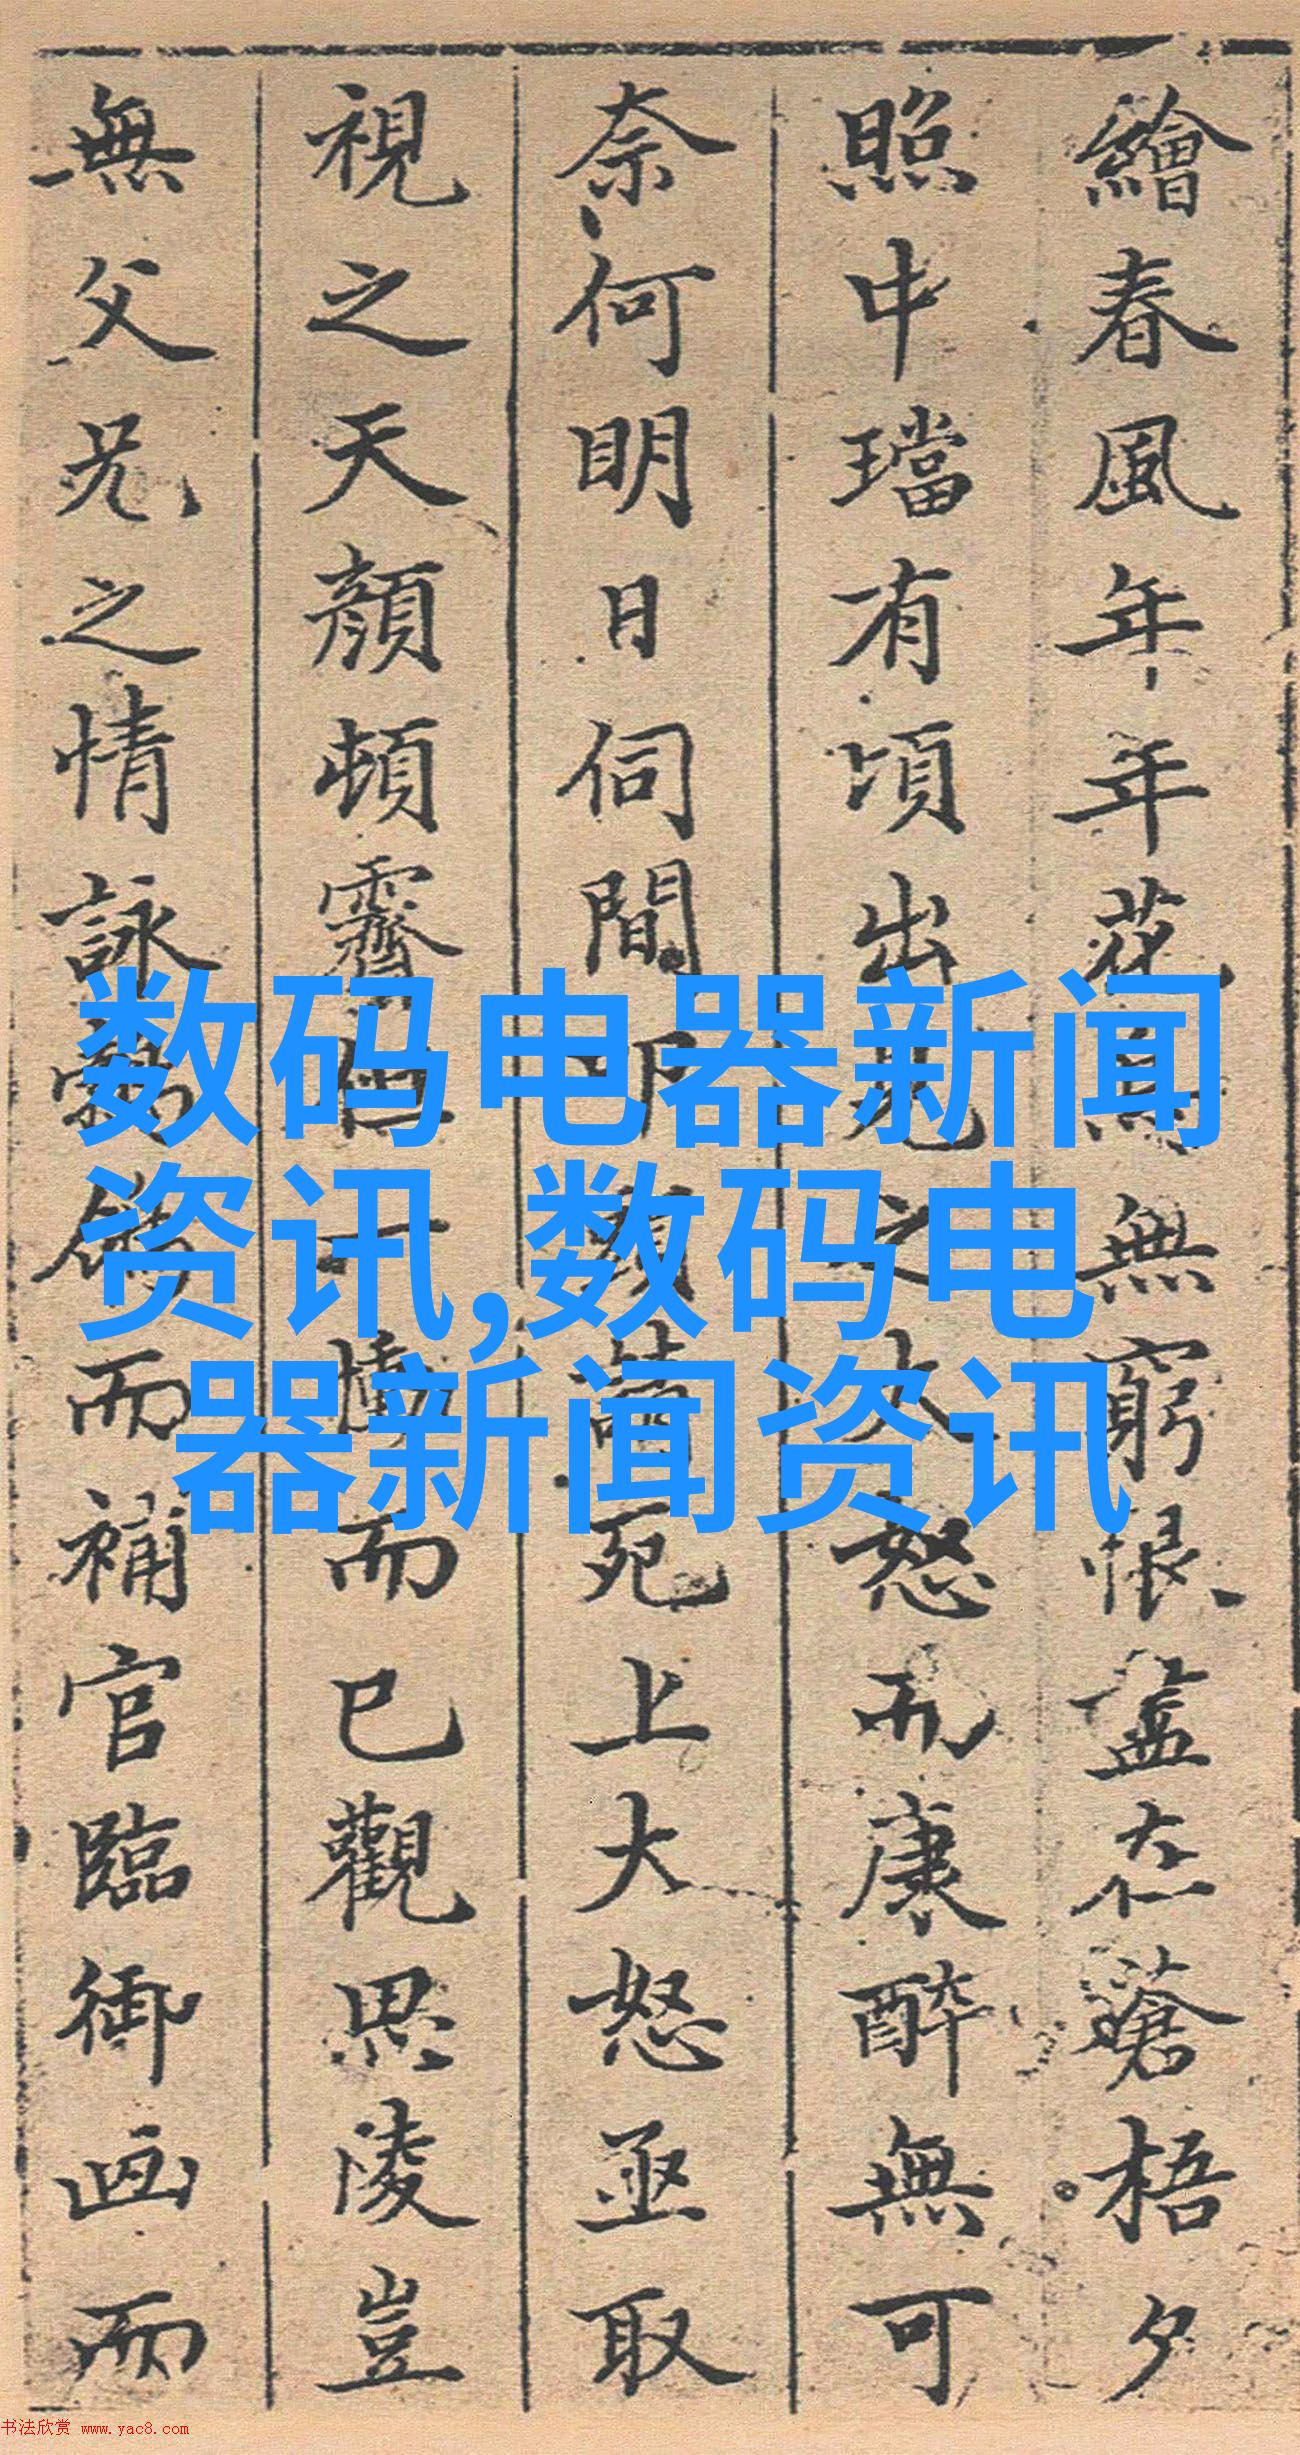 繪春風年年花鳥無窮恨盡在蒼梧夕
照中璫有頃出見之大怒而康醉無可
奈何明日伺間叩頭請死上大怒亟取
視之天顏頓霽但一慟而已觀思陵豈
無父兄之情詠而補官臨御画而
数码电器新闻
资讯,数码电
器新闻资讯
书法欣赏 www.yac8.com